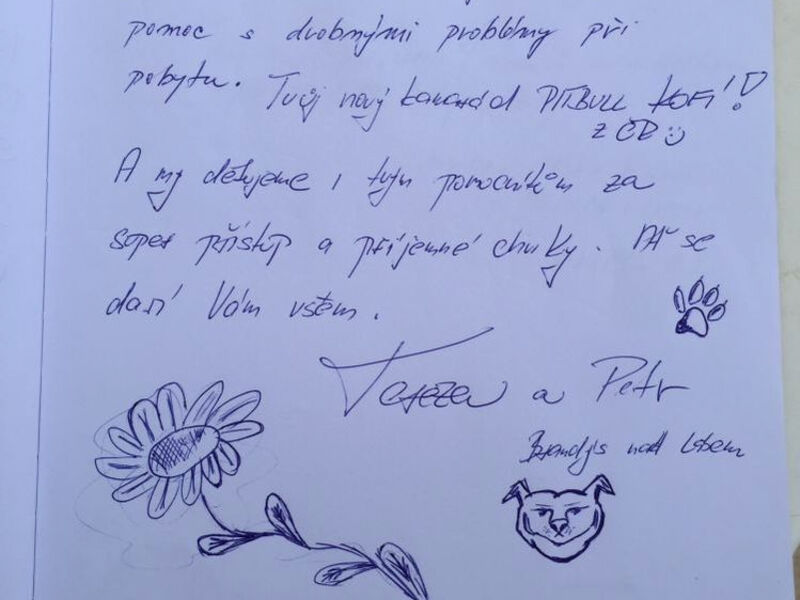 pomoc s drobnými problémy při
pobytu. Tvůj nový kamarád PITBULL KOFI!
z ČR
A my děkujeme i tvým pomocníkům za
super přístup a příjemné chvíly. Ať se
daří Vám všem.
Tereza a Petr
Brandýs nad Labem